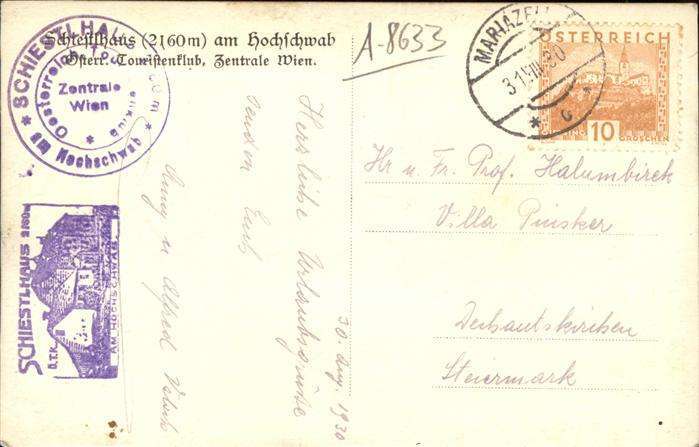 Schiestlhaus (2160 m) am Hochschwab
Österr. Touristenklub, Zentrale Wien.
A-8633
SCHIESTLHAUS
* am Hochschwab *
Oesterreich.
Zentrale
Wien
MARIAZELL
31.VIII.30
* c *
ÖSTERREICH
10
GROSCHEN
SCHIESTLHAUS 2160m
Ö.T.K.
AM HOCHSCHWAB
30. Aug. 1930
Herzliche Urlaubsgrüsse
senden Euch
u Alfred
Hr u. Fr. Prof. Halumbirek
Villa Pinsker
Dechantskirchen
Steiermark